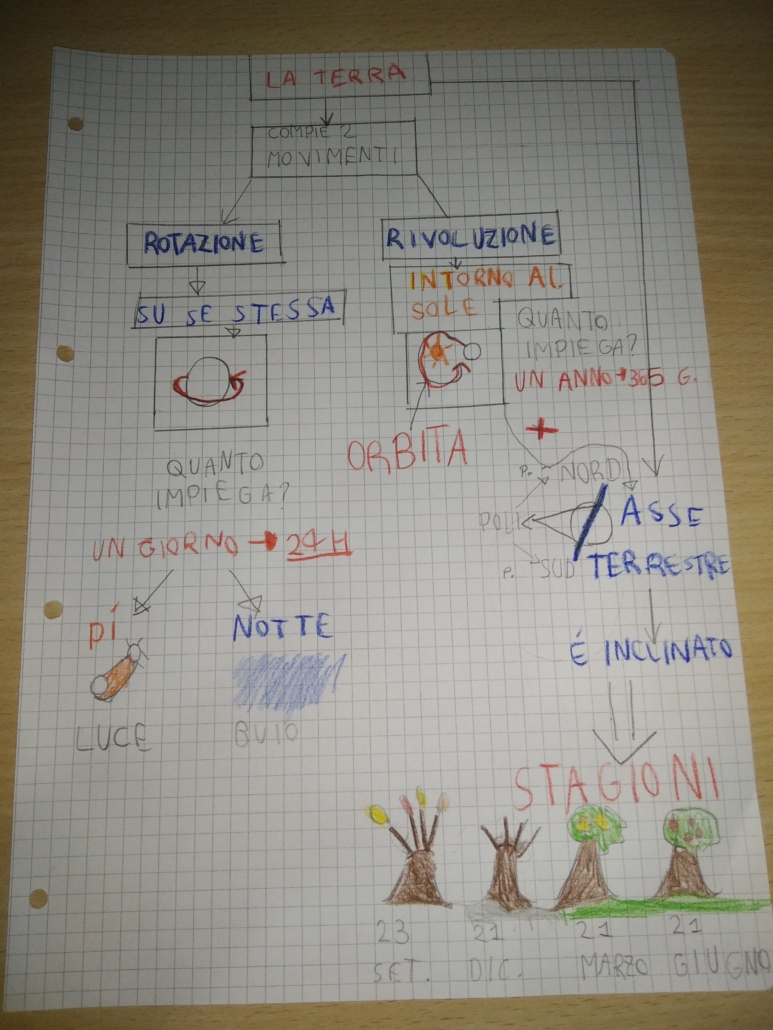 LA TERRA
COMPIE 2
MOVIMENTI
ROTAZIONE
SU SE STESSA
QUANTO
IMPIEGA?
UN GIORNO → 24 H
DÍ
LUCE
NOTTE
BUIO
RIVOLUZIONE
INTORNO AL
SOLE
QUANTO
IMPIEGA?
UN ANNO → 365 G.
ORBITA
+
P. NORD
POLI
P. SUD
ASSE
TERRESTRE
É INCLINATO
STAGIONI
23
SET.
21
DIC.
21
MARZO
21
GIUGNO